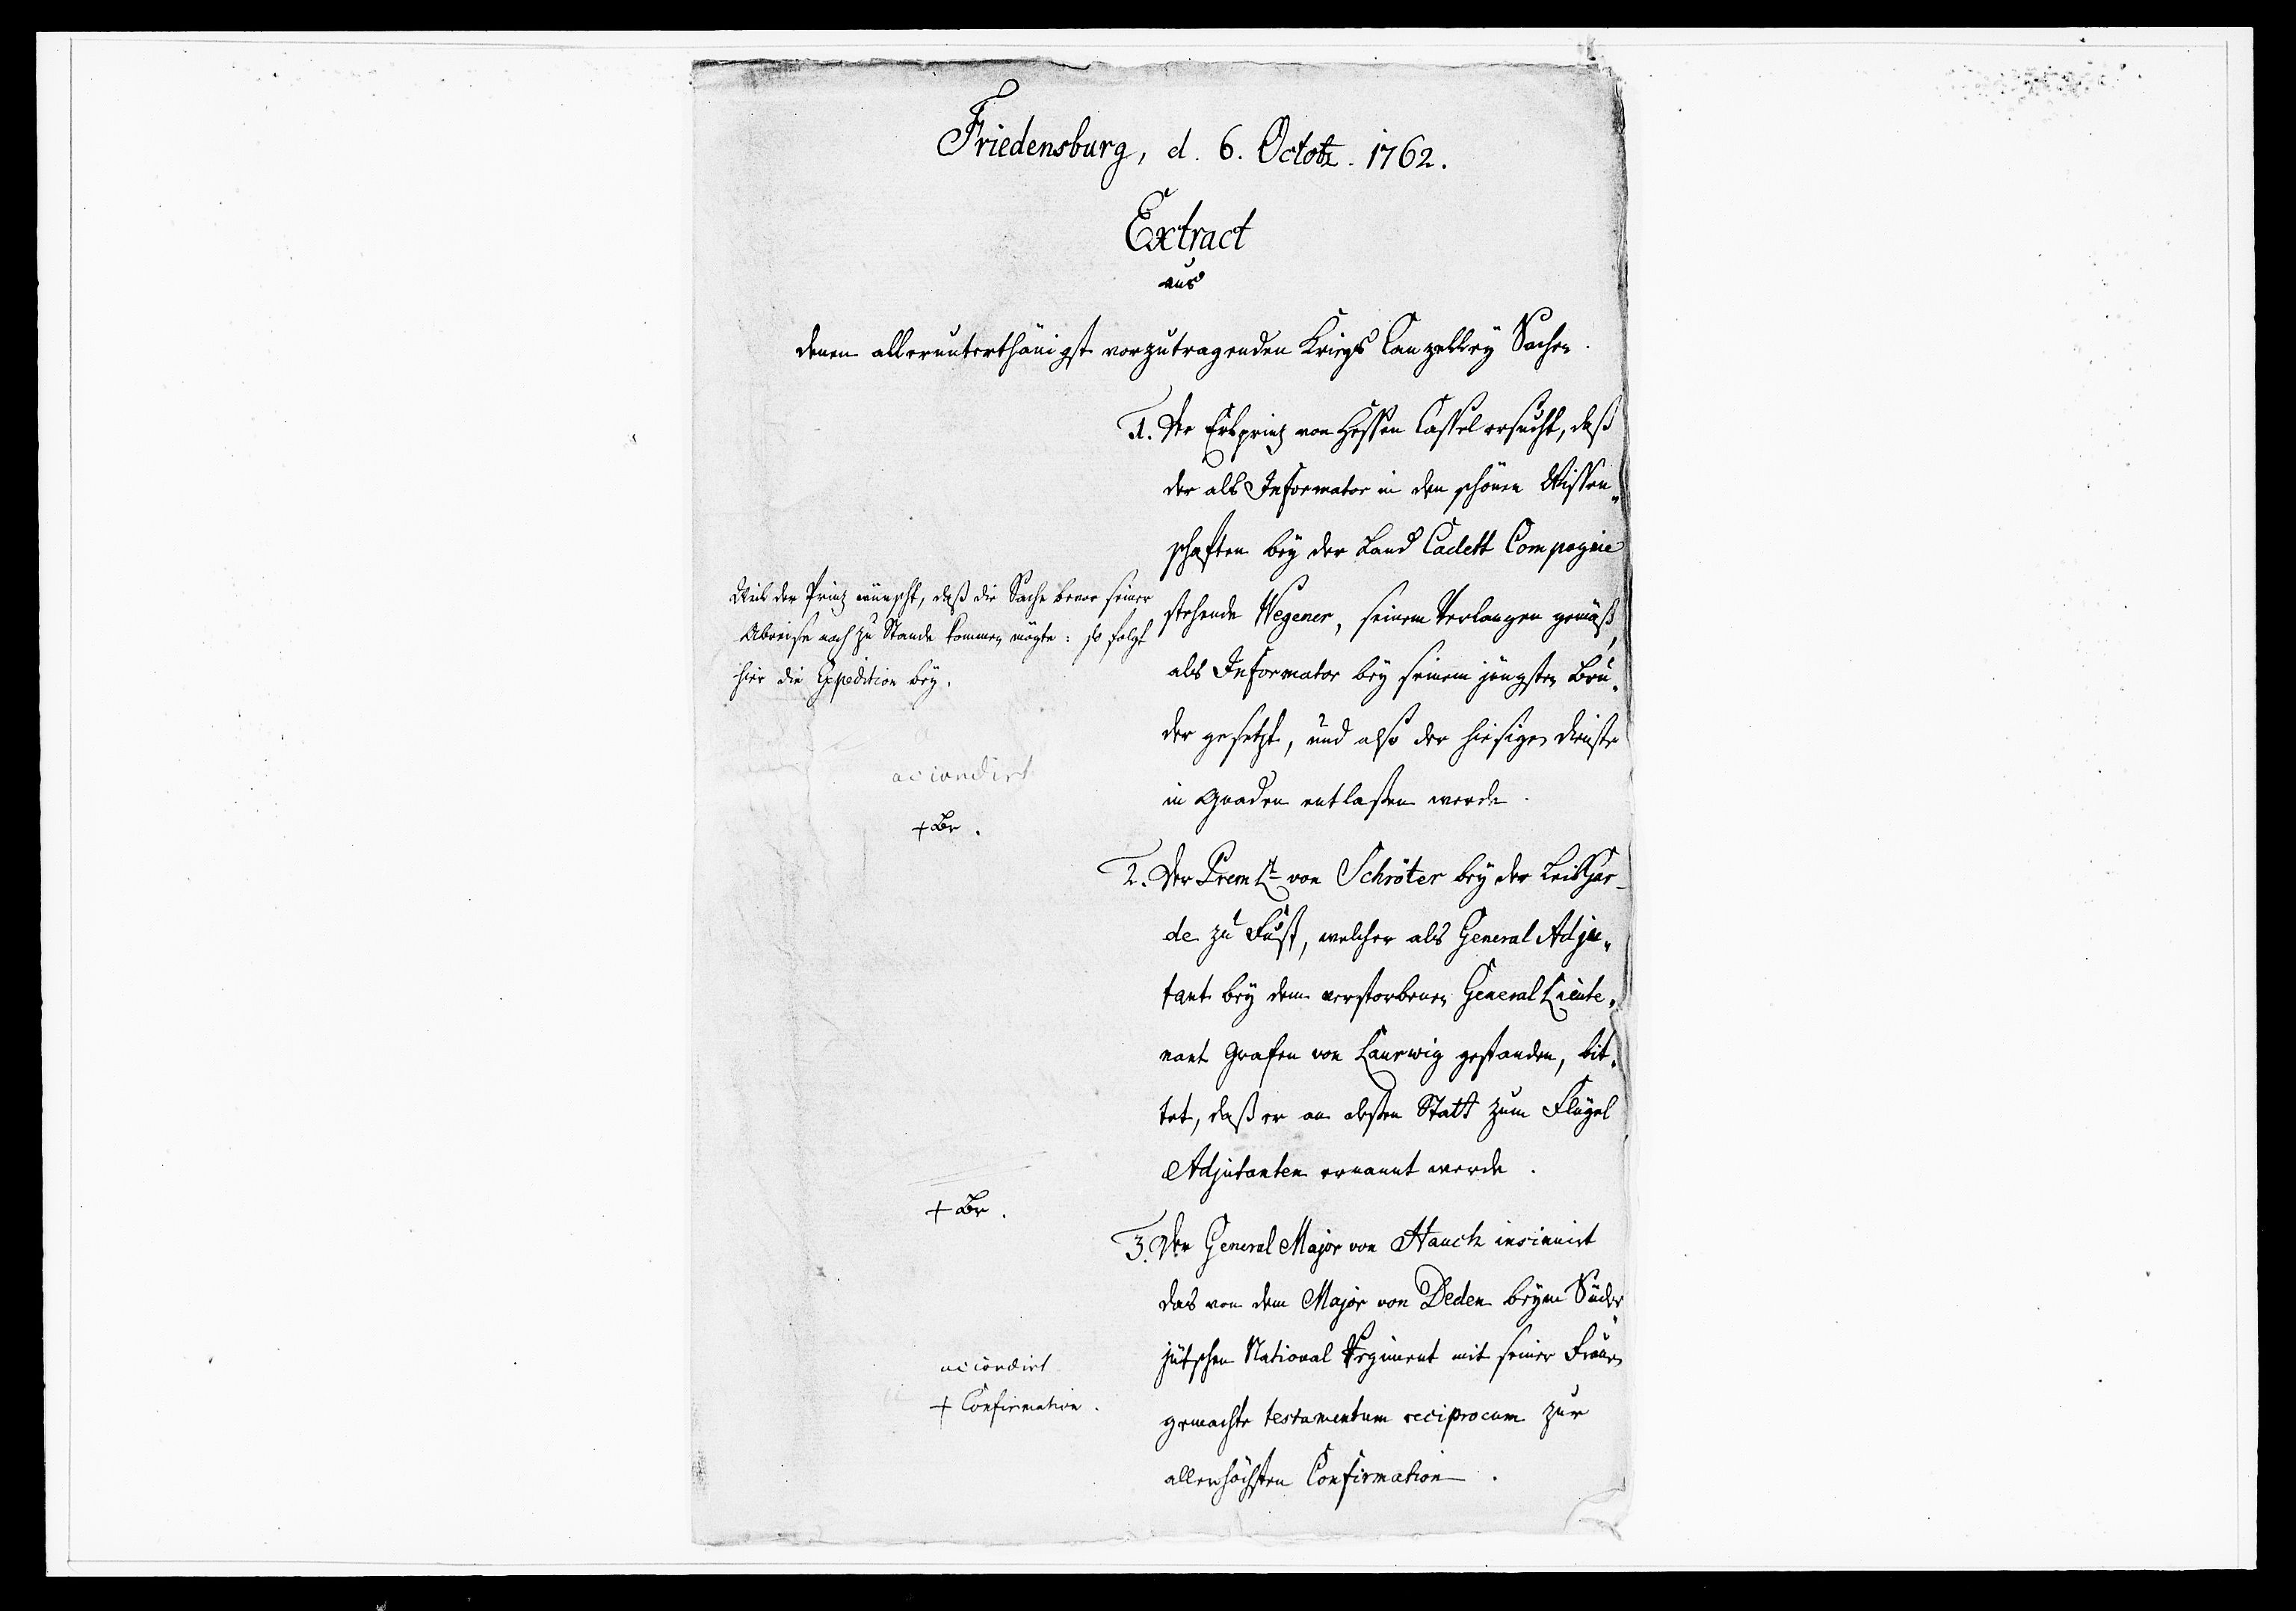 Friedensburg, d. 6. Octobr. 1762.
Extract
aus
denen allerunterthänigst vorzutragenden Kriegs Canzelley Sachen.
1. Der Erbprinz von Hessen Cassel ersucht, daß
der als Informator in den schönen Wissen„
schaften bey der Land Cadett Compagnie
stehende Wegener, seinem Verlangen gemäß,
als Informator bey seinem jüngsten Bru„
der gesetzt, und also der hiesigen Dienste
in Gnaden entlaßen werde.
Weil der Prinz wünscht, daß die Sache bevor seiner
Abreise noch zu Stande kommen mögte: so folgt
hier die Expedition bey.
accordirt
+ Br.
2. Der Prem Lt von Schröter bey der LeibGar-
de zu Fuß, welcher als General Adju„
tant bey dem verstorbenen General Lieute„
nant Grafen von Laurwig gestanden, bit„
tet, daß er an deßen Statt zum Flügel
Adjutanten ernannt werde.
+ Br.
3. Der General Major von Hauch insinuirt
das von dem Major von Deden beym Süder„
jütschen National Regiment mit seiner Frauen
gemachte testamentum reciprocum zur
allerhöchsten Confirmation.
accordirt
+ Confirmation.